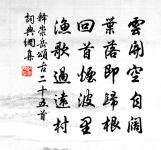 雲開空自闊
葉落即歸根
回首煙波里
漁歌過遠村
釋崇岳頌古二十五首
詞典網集